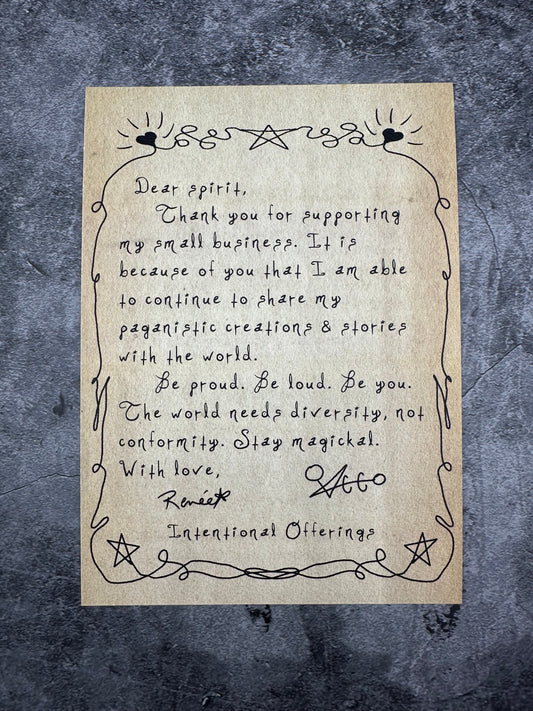 Dear spirit,
Thank you for supporting
my small business. It is
because of you that I am able
to continue to share my
paganistic creations & stories
with the world.
Be proud. Be loud. Be you.
The world needs diversity, not
conformity. Stay magickal.
With love,
Renée
Intentional Offerings